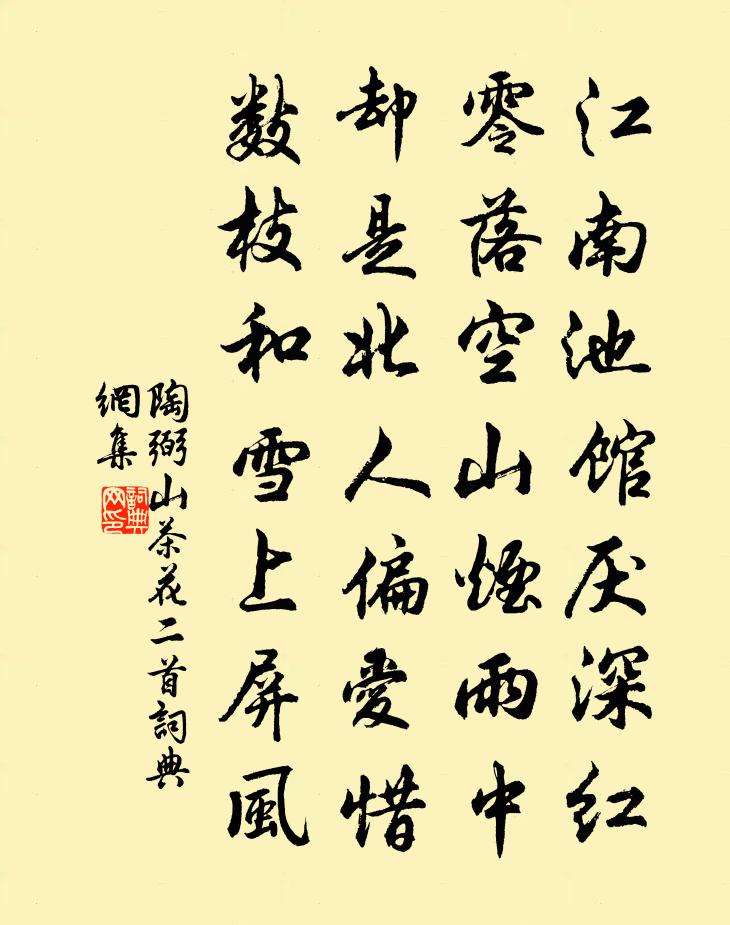 江南池馆厌深红
零落空山煙雨中
却是北人偏愛惜
数枝和雪上屏風
陶弼山茶花二首詞典
網集
詞典
网印